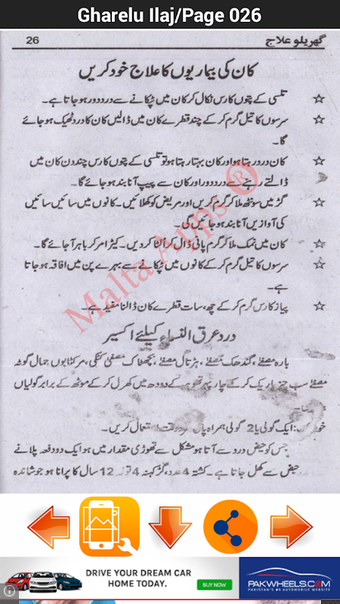 Gharelu Ilaj/Page 026
گھریلو علاج
26
کان کی بیماریوں کا علاج خود کریں
☆ تلسی کے پتوں کا رس نکال کر کان میں ٹپکانے سے درد دور ہو جاتا ہے۔
☆ سرسوں کا تیل گرم کر کے چند قطرے کان میں ڈالیں کان کا درد ٹھیک ہو جائے
گا۔
☆ کان درد رہتا ہو اور کان بہتا رہتا ہو تو تلسی کے پتوں کا رس چند دن کان میں
ڈالتے رہنے سے درد دور اور کان سے پیپ آنا بند ہو جائے گا۔
☆ گڑ میں سونٹھ ملا کر گرم کریں اور مریض کو کھلائیں۔ کانوں میں سائیں سائیں
کی آوازیں آنا بند ہو جائیں گی۔
☆ کان میں نمک ملا کر گرم پانی ڈال کر الٹا کر دیں۔ کیڑا مر کر باہر آ جائے گا۔
☆ سرسوں کا تیل گرم کر کے کانوں میں ٹپکانے سے بہرے پن میں افاقہ ہو جاتا
ہے۔
☆ پیاز کا رس گرم کر کے چھ، سات قطرے کان ڈالنا مفید ہے۔
Malta Apps ®
درد عرق النساء کیلئے اکسیر
پارہ مصفےٰ، گندھک مصفےٰ، ہڑتال مصفےٰ، بچھناک مصفیٰ تنکی، مرکٹا پون جمال گوٹہ
مصفےٰ سب چیز باریک کر کے چار پہر تھوہر کے دودھ میں کھرل کر کے موٹھ کے برابر گولیاں
ایک گولی یا 2 گولی ہمراہ پانی استعمال کریں۔
جس کو حیض درد سے آتا ہو مشکل سے تھوڑی مقدار میں ہو ایک دو دفعہ پلانے
حیض سے کھل جاتا ہے۔ کشتہ 4 عدد، گڑ کہنہ 4 تولہ 12 سال کا پرانا ہو جوشاندہ
DRIVE YOUR DREAM CAR
HOME TODAY.
BUY NOW
PAKWHEELS.COM
PAKISTAN'S #1 AUTOMOBILE WEBSITE